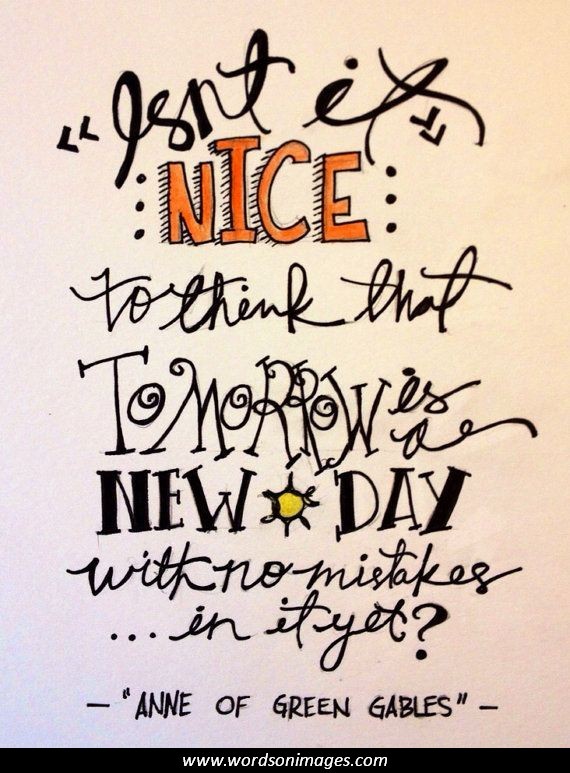 Isnt it
NICE
to think that
TOMORROW is a
NEW DAY
with no mistakes
... in it yet?
- "ANNE OF GREEN GABLES" -
www.wordsonimages.com